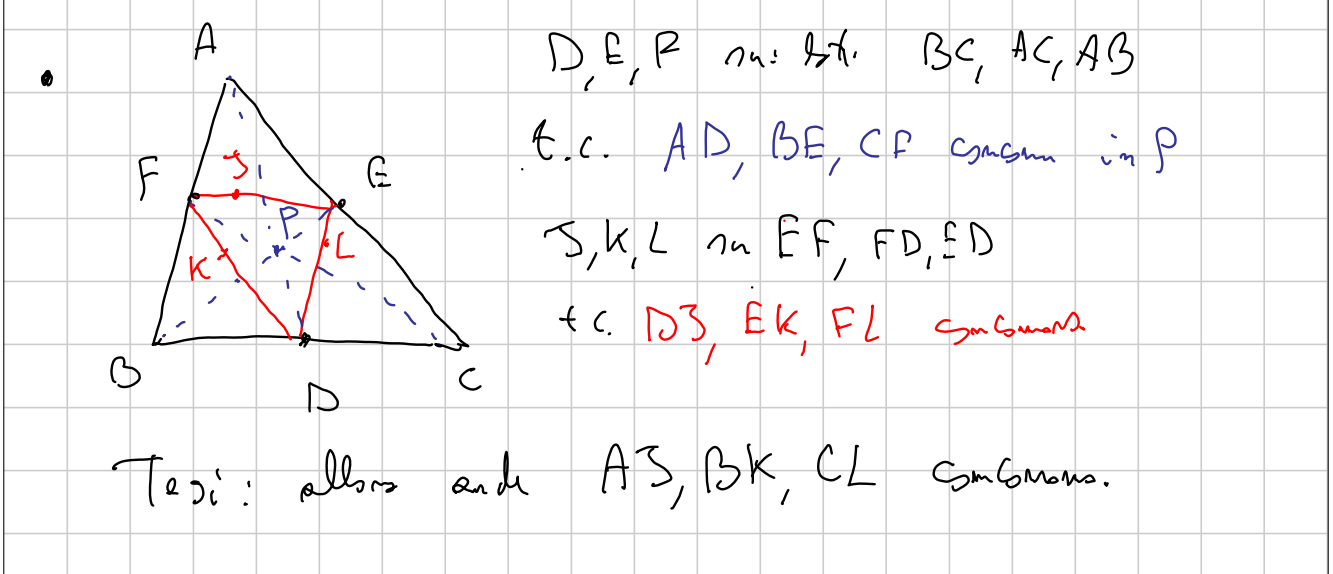 A
D, E, F sui lati BC, AC, AB
F
J
E
t.c. AD, BE, CF concorrono in P
P
K
L
J, K, L su EF, FD, ED
t.c. DJ, EK, FL concorrono
B
D
C
Tesi: allora anche AJ, BK, CL concorrono.